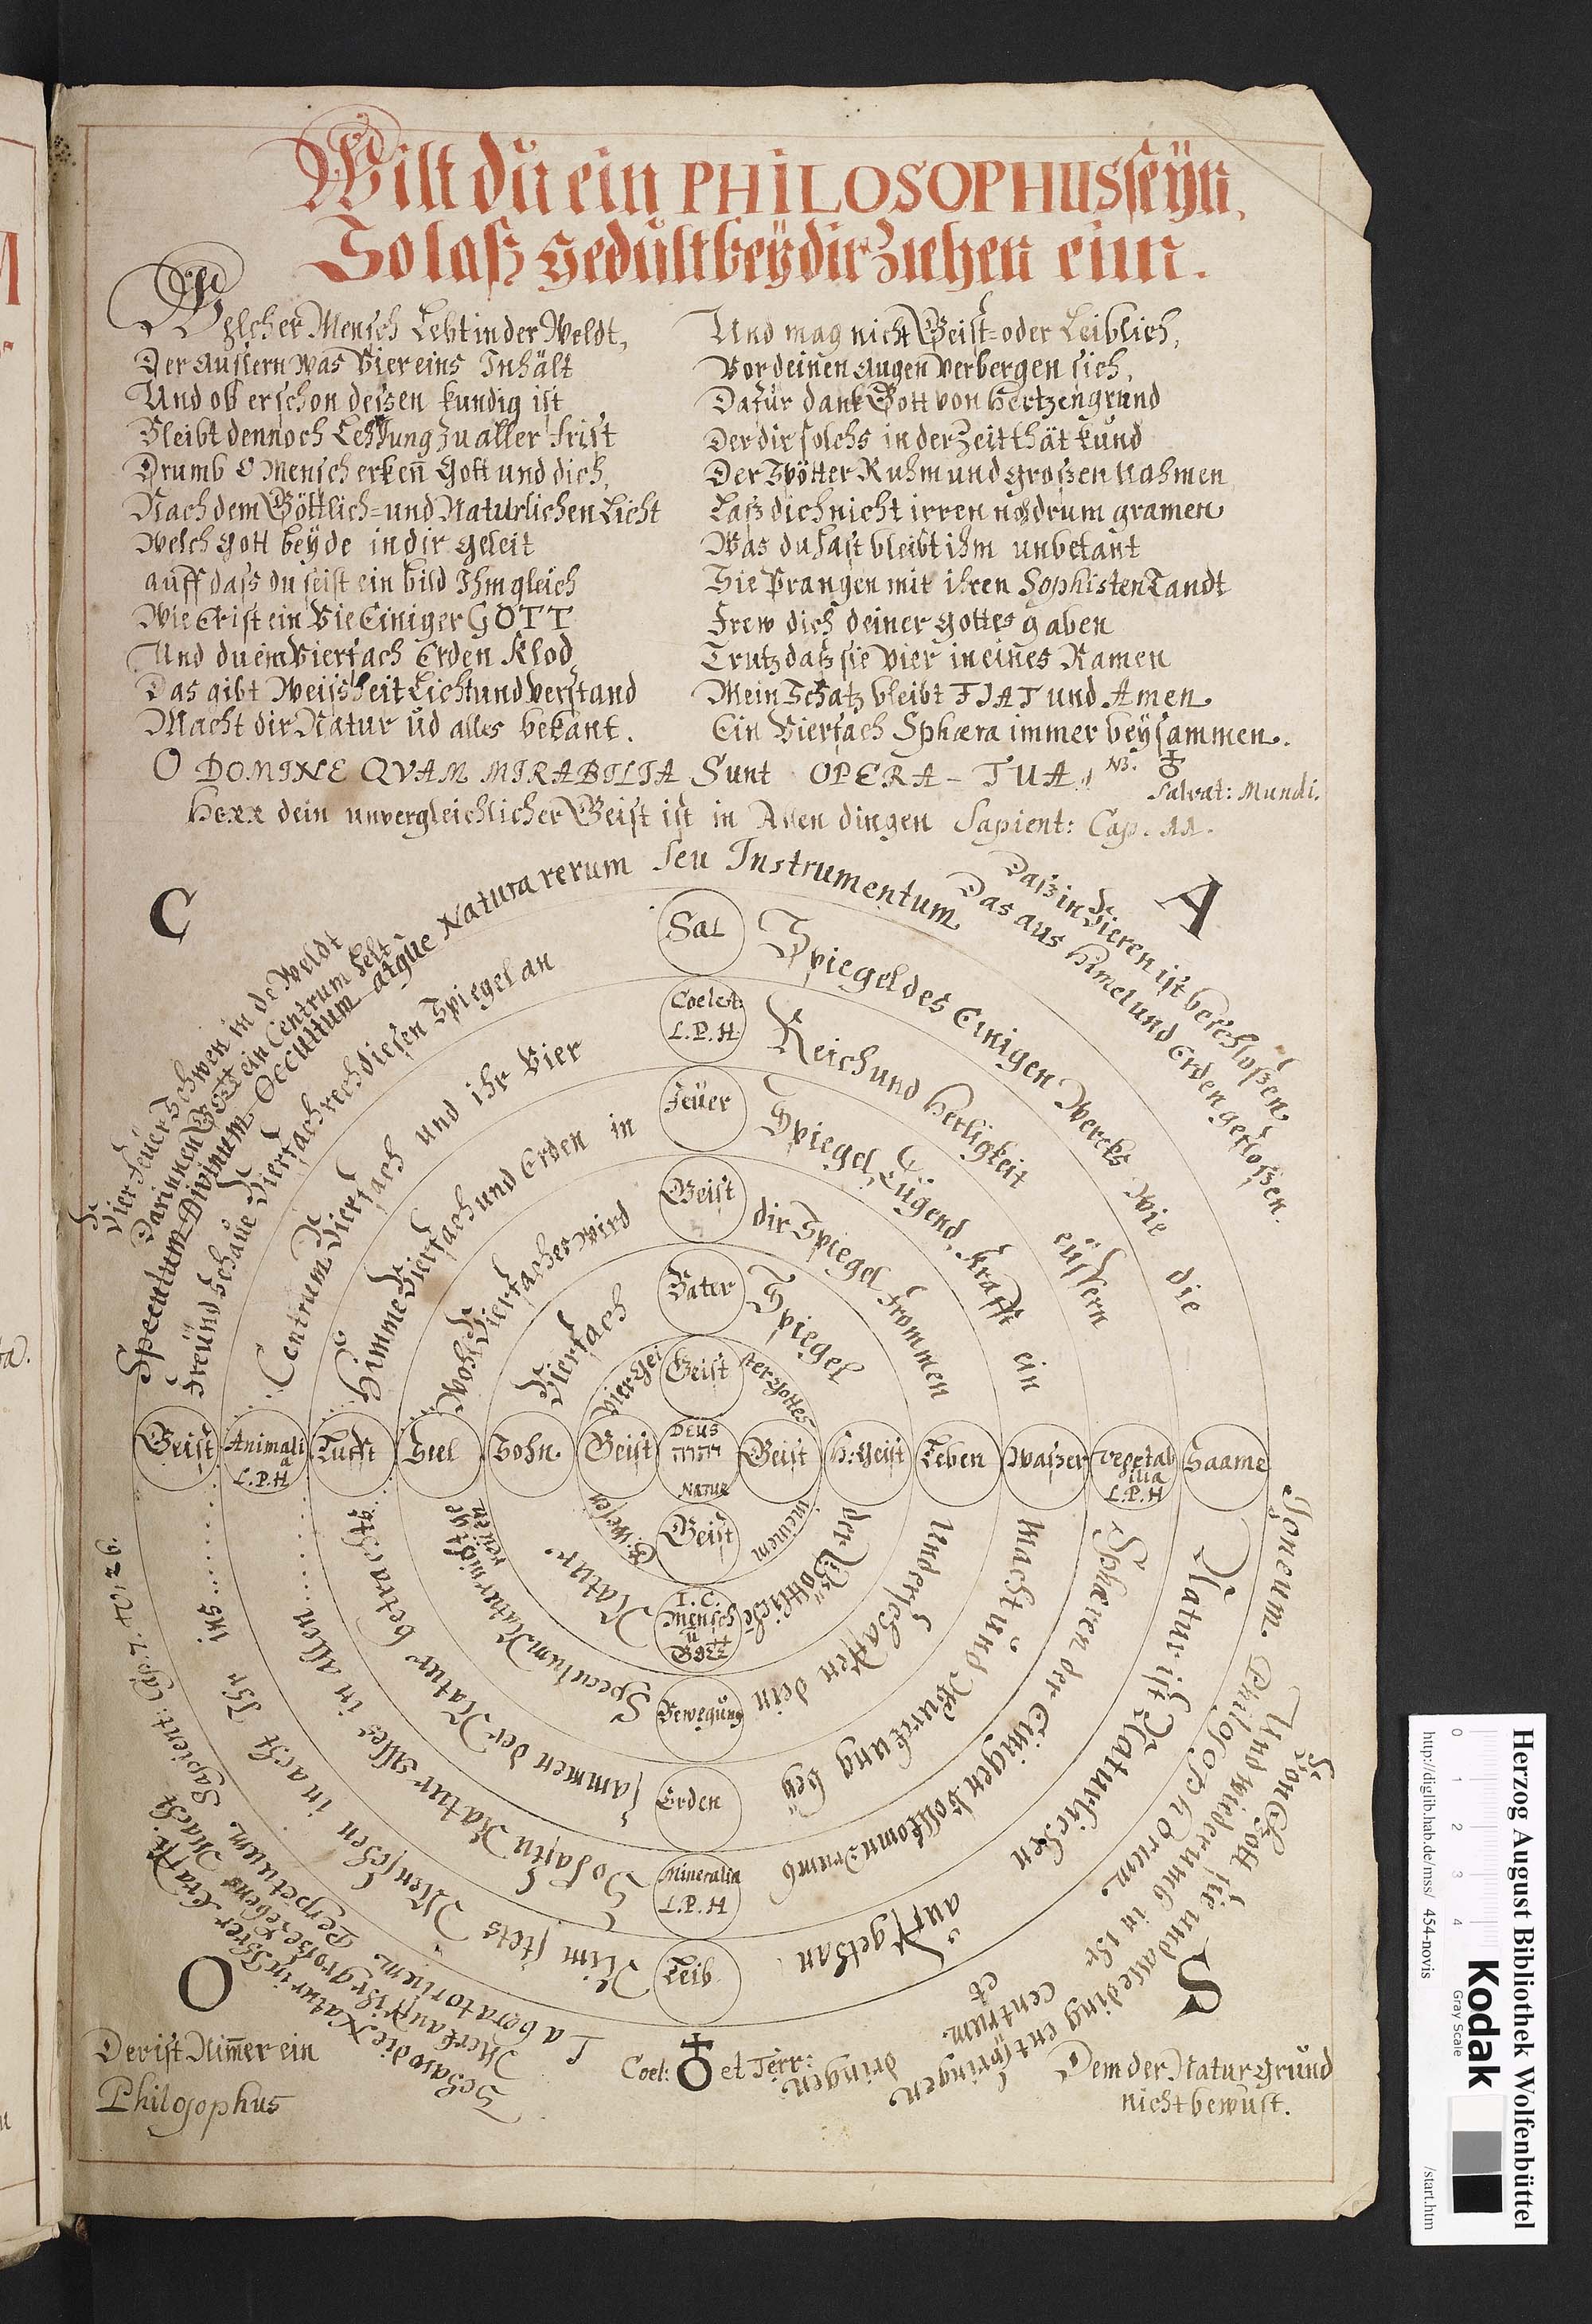 Wilt du ein PHILOSOPHUS seÿn,
So laß Gedult beÿ dir Ziehen ein.
Welcher Mensch Lebt in der Weldt,
Der aussern was Vier eins Inhält
Und ob er schon deßen kundig ist
Bleibt dennoch zu aller frist
Drumb O Mensch erkeñ Gott und dich,
Nach dem Göttlich= und Naturlichen Licht
Welch Gott beÿde in dir geleit
auff dass du seist ein bild Ihm gleich
Wie Er ist ein Vie Einiger GOTT
Und du ein Vierfach Erden Klod
Das gibt Weissheit Licht und Verstand
Macht dir Natur üd alles bekant.
Und mag nicht Geist= oder Leiblich,
Vor deinen Augen verbergen sich,
Dafür dank Gott von Hertzen grund
Der dir solchs in der Zeit thät kund
Der Spötter Ruhm und großen Nahmen
Laß dich nicht irren noch drum gramen
Was du hast bleibt ihm unbekant
Sie Prangen mit ihren Sophisten Tandt
Frew dich deiner Gottes gaben
Trutz daß sie Vier in eines Ramen
Mein Schatz bleibt FIAT und Amen
Ein Vierfach Sphæra immer beÿsammen.
O DOMINE QVAM MIRABILIA Sunt OPERA - TUA, NB. ♁
Salvat: Mundi.
Herr dein unvergleichlicher Geist ist in Allen dingen Sapient: Cap. 11.
C
A
Vier feüer Schwen in de Weldt
Darinnen Gott ein Centrum helt
Daß in Vieren ist beschloßen
Das aus Himel und Erden gefloßen.
Speculum Divinum Occultum atque Natura rerum seu Instrumentum
Freünd schaue Vierfach rech diesen Spiegel an
Spiegel des Einigen Wercks Wie die
Centrum Vierfach und ihr Vier
Reich und Herligkeit eüssern
Himme Vierfach und Erden in
Spiegel, Tügend, Krafft ein
Wohl Vierfacher wird
dir Spiegel frommen
Vierfach
Spiegel
Vier Gei
ster Gottes
Sal
Coelest:
L.P.H
Feüer
Geist
Vater
Geist
Geist
Animali
a
L.P.H
Lufft
Seel
Sohn
Geist
DEUS
NATUR
Geist
H: Geist
Leben
Waßer
Vegetab
ilia
L.P.H
Saame
Geist
I.C.
Mensch
ũ
Gott
Bewegung
Erden
Mineralia
L.P.H
Leib
wesen
in einem
Natur
der Göttliche
Speculum Natur nicht ge
reüen
Und erschaffen dein
sammen der Natur betracht
Macht und Würckung beÿ
So hastu Natur Alles in Allen
Sphæren der Einigen Vollkomn drumb
Nim stets Menschen in acht Ihr ins
Natur ist Natürlichen auffgethan
Igneum. Philosophorum. centrum et
Laboratorium Perpetuum. Sapient: Cap. 7. 21. 26.
Von Gott sie und alle ding entspringen
Und wiederumb in ihr dringen
Schaw die Natur in Ihrer Krafft
Merk auff ihr große Lebens Macht
O
S
Coel: ♁ et Terr:
Der ist Nim̃er ein
Philosophus
Dem der Natur grund
nicht bewust.
Herzog August Bibliothek Wolfenbüttel
http://diglib.hab.de/mss/ 454-novis /start.htm
0 1 2 3 4
Kodak
Gray Scale